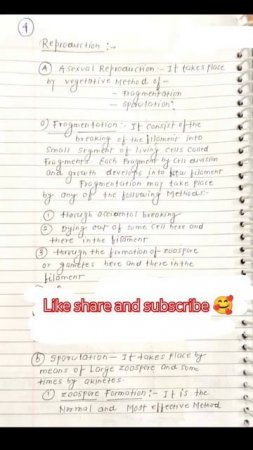 4
Reproduction :-
(A) Asexual Reproduction :- It takes place
by vegetative Method of -
- Fragmentation
- Sporulation
a) Fragmentation :- It consist of the
breaking of the filament into
Small segment of living Cells Called
Fragments. Each Fragment by Cell division
and growth develops into New filament
Fragmentation may take place
by any of the following Methods:-
(1) thorugh accidental breaking
(2) Dying out of some Cell here and
there in the filament
(3) through the formation of zoospore
or gametes here and there in the
filament
Like share and subscribe 🥰
(b) Sporulation - It takes place by
means of Large zoospore and some
times by akinetes.
(1) Zoospore Formation:- It is the
Normal and Most effective Method